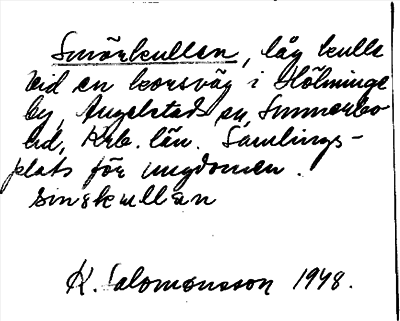 Smörkullen, låg kulle
vid en korsväg i Hölminge
by, Angelstads sn, Sunnerbo
hd, Krb. län. Samlings-
plats för ungdomen.
smskullan
K. Salomonsson 1948.